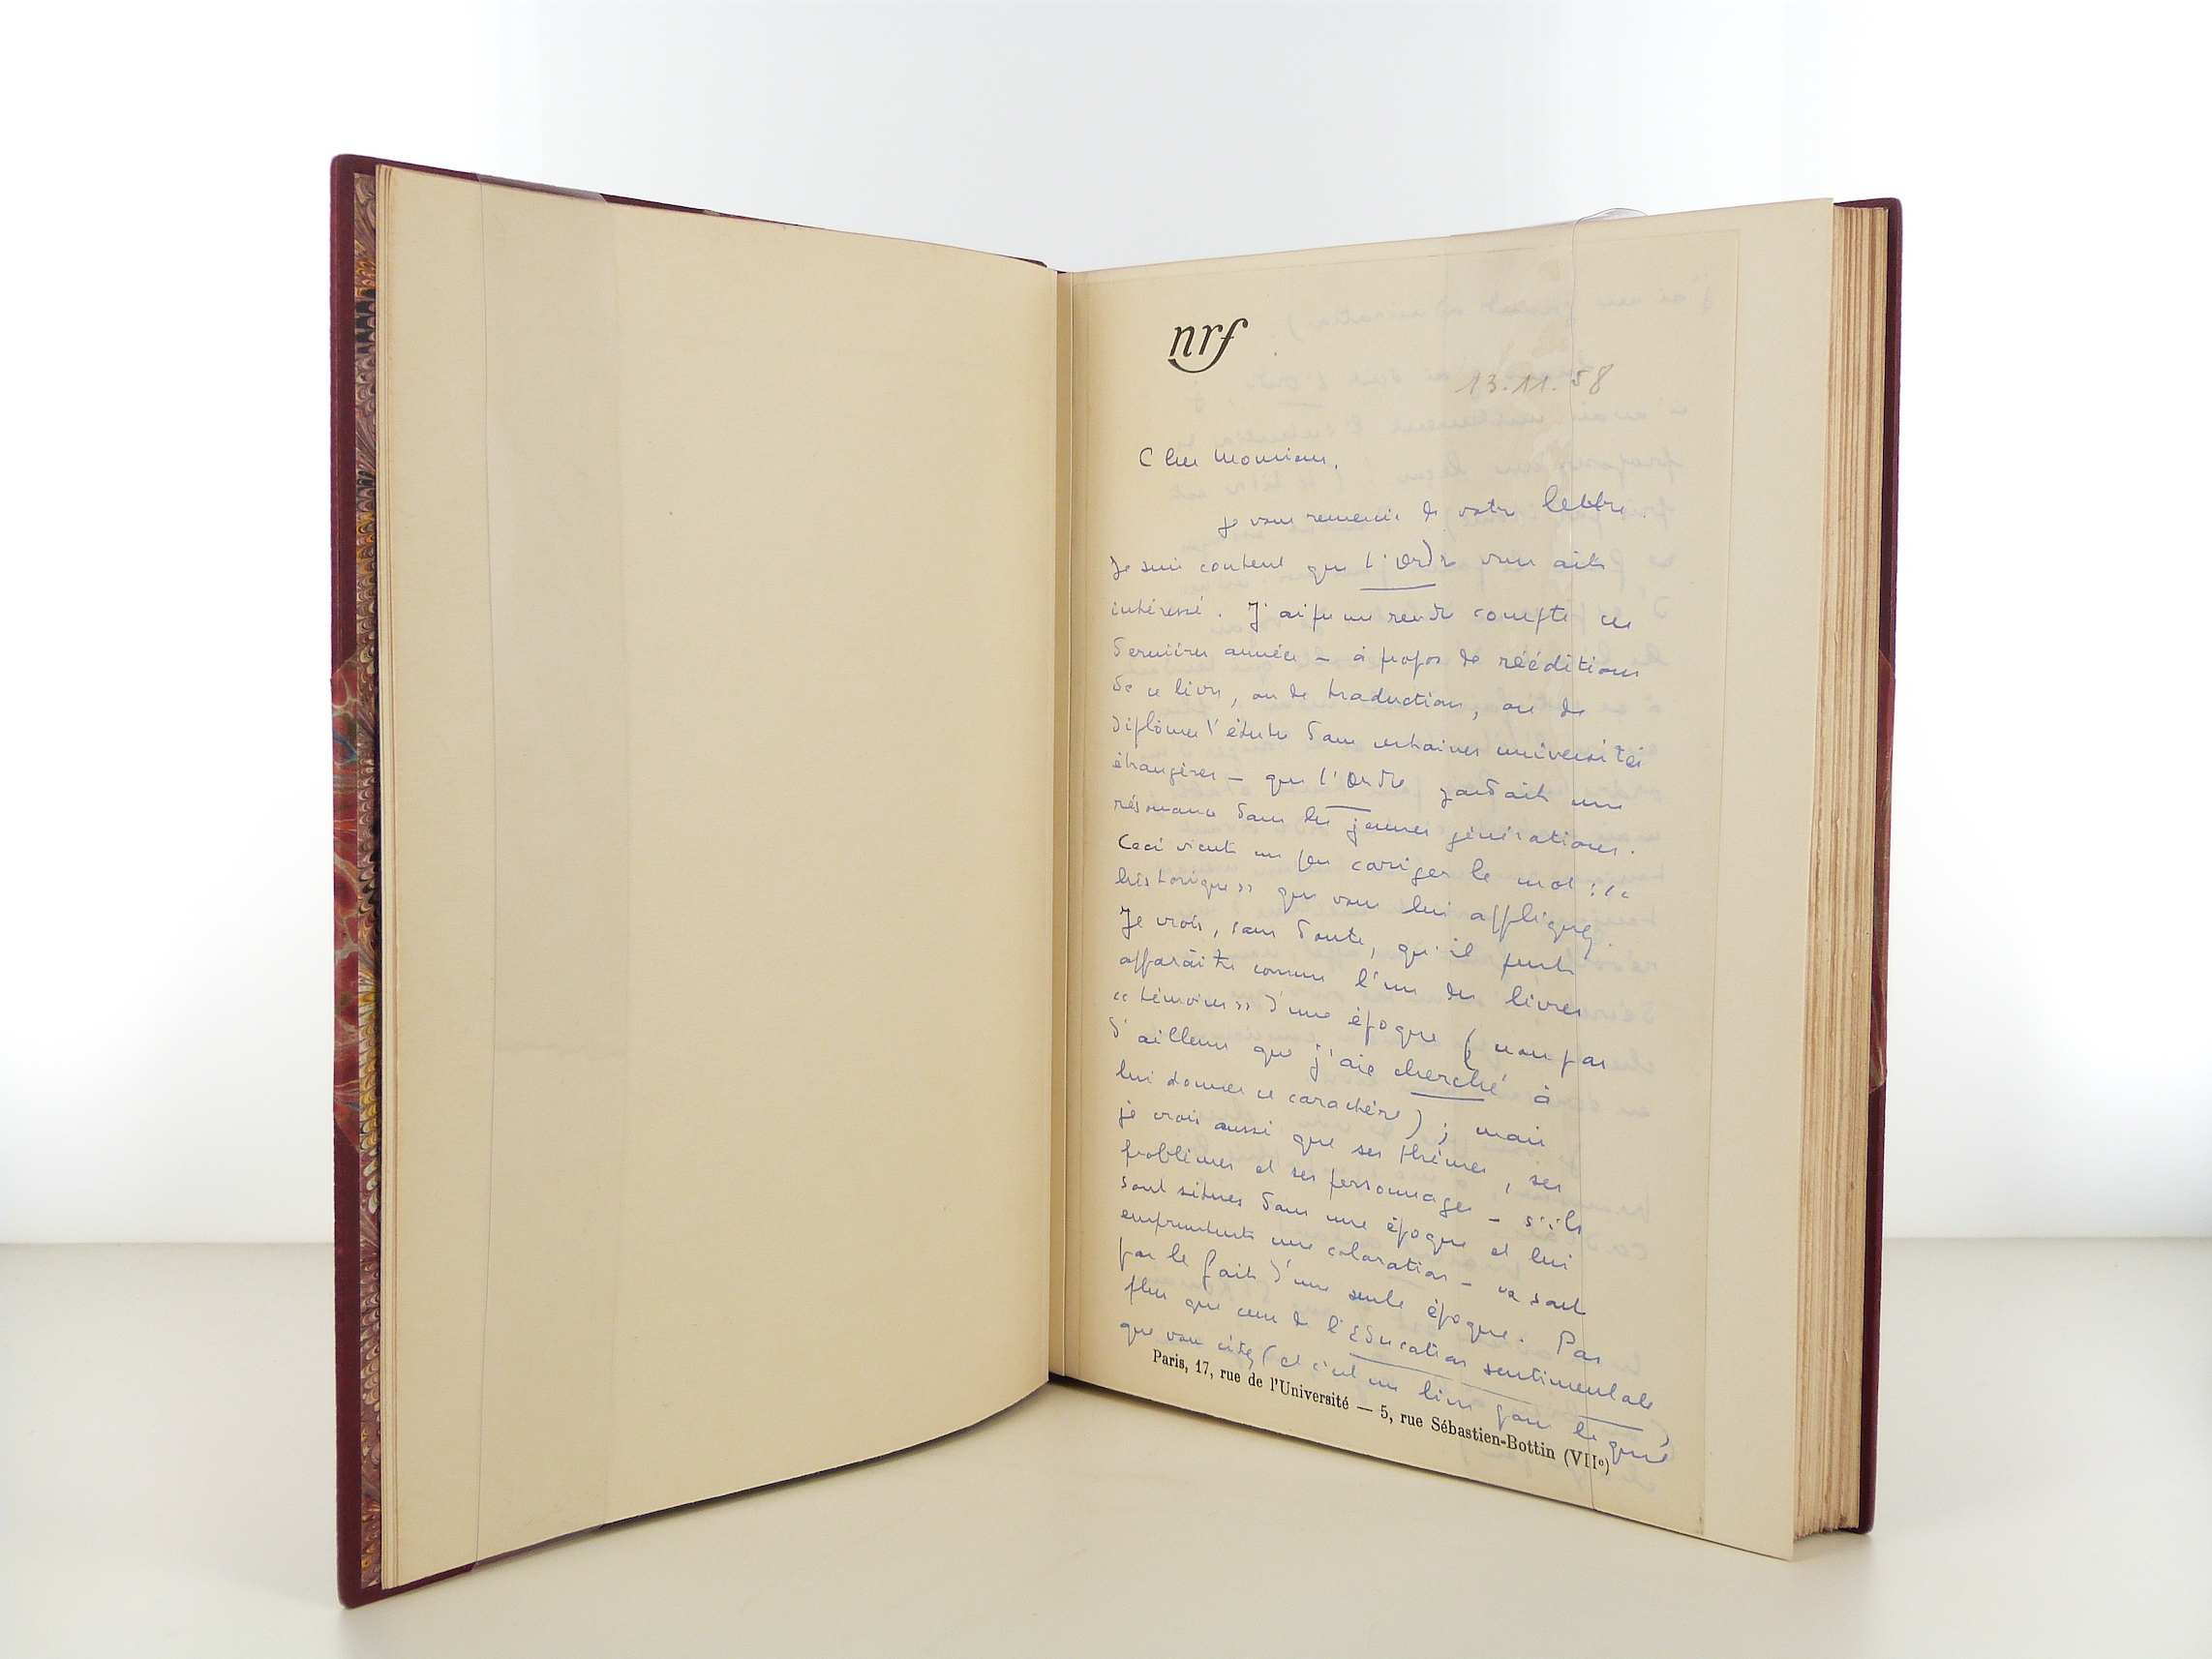 nrf
13.11.58
Cher Monsieur,
je vous remercie de votre lettre.
Je suis content que l'Ordre vous ait
intéressé. J'ai pu me rendre compte ces
dernières années – à propos de rééditions
de ce livre, ou de traductions, ou de
diplômes d'étude dans certaines universités
étrangères – que l'Ordre gardait une
résonance dans les jeunes générations.
Ceci vient un peu corriger le mot : «
historique » que vous lui appliquez.
Je crois, sans doute, qu'il peut
apparaître comme l'un des livres
« témoins » d'une époque (non pas
d'ailleurs que j'aie cherché à
lui donner ce caractère) ; mais
je crois aussi que ses thèmes, ses
problèmes et ses personnages – s'ils
sont situés dans une époque et lui
empruntent une coloration – ne sont
pas le fait d'une seule époque. Pas
plus que ceux de l'Education sentimentale
que vous citez (et c'est un livre pour lequel
Paris, 17, rue de l'Université — 5, rue Sébastien-Bottin (VIIe)